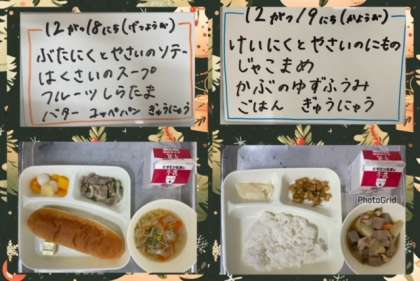 12がつ18にち(げつようび)
ぶたにくとやさいのソテー
はくさいのスープ
フルーツしらたま
バター コッペパン ぎゅうにゅう
12がつ19にち(かようび)
けいにくとやさいのにもの
じゃこまめ
かぶのゆずふうみ
ごはん ぎゅうにゅう
PhotoGrid